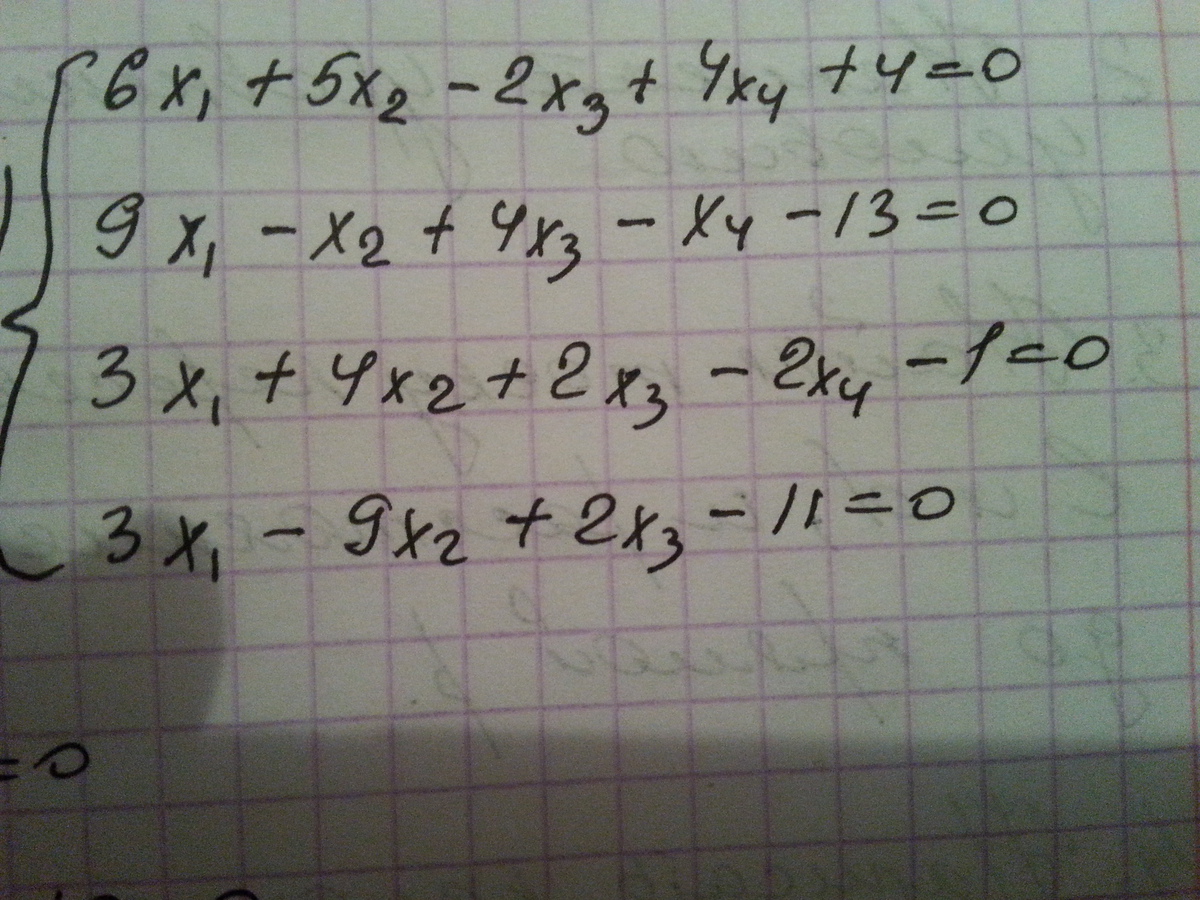 6x₁ + 5x₂ - 2x₃ + 4x₄ + 4 = 0
9x₁ - x₂ + 4x₃ - x₄ - 13 = 0
3x₁ + 4x₂ + 2x₃ - 2x₄ - 1 = 0
3x₁ - 9x₂ + 2x₃ - 11 = 0
= 0